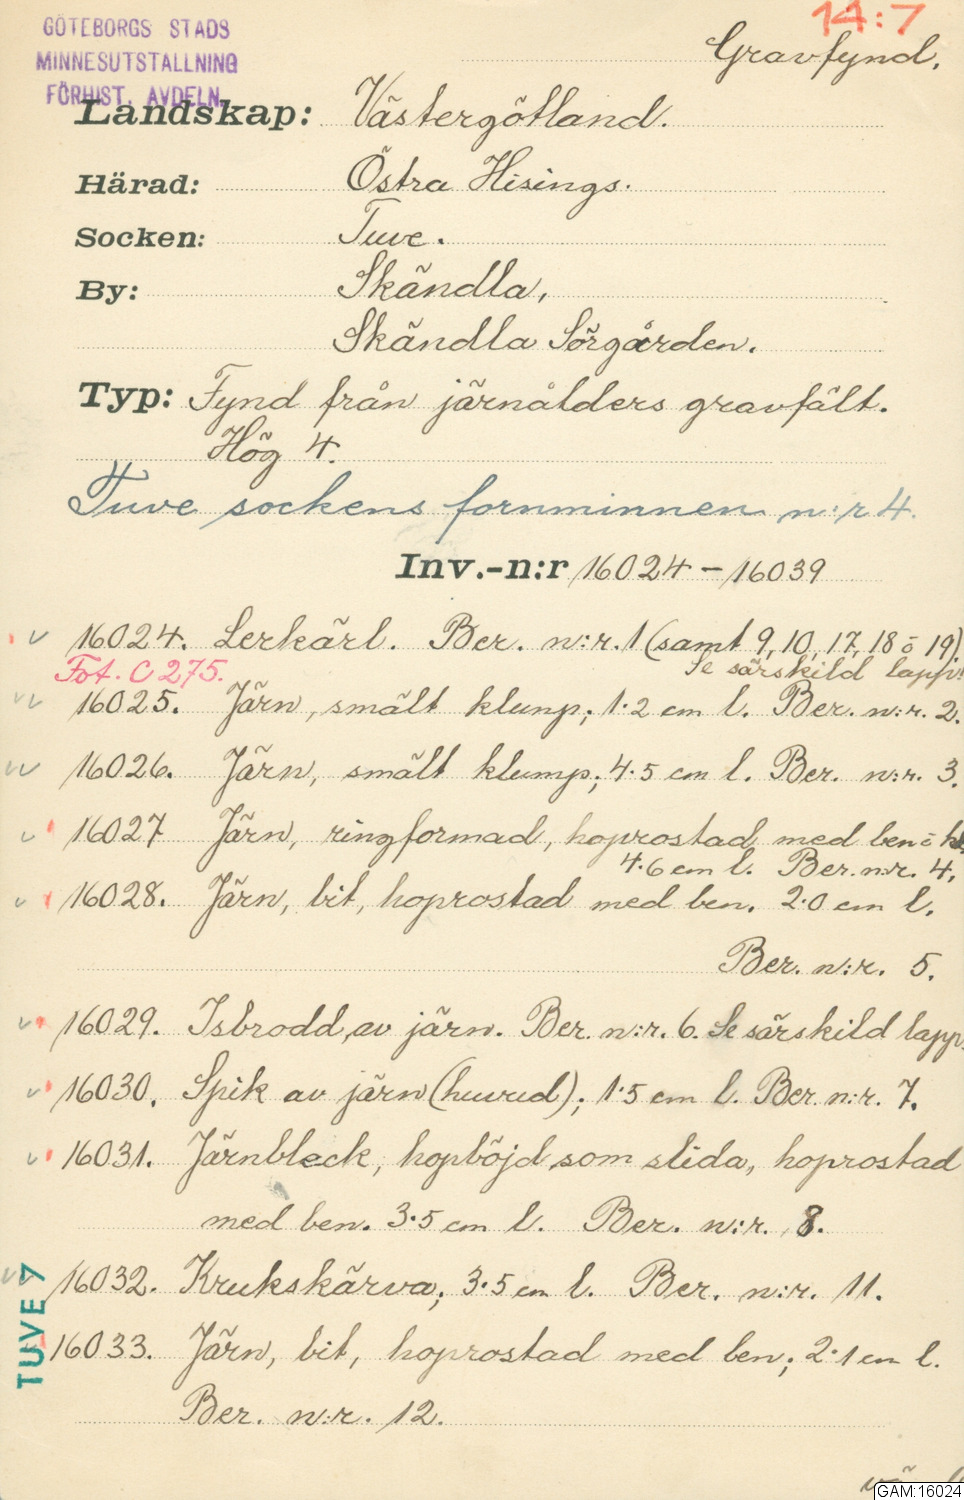 14:7
GÖTEBORGS STADS
MINNESUTSTALLNING
FÖRHIST. AVDELN.
Gravfynd.
Landskap: Västergötland.
Härad: Östra Hisings.
Socken: Tuve.
By: Skändla,
Skändla Sörgården.
Typ: Fynd från järnålders gravfält.
Hög 4.
Tuve sockens fornminnen n:r 4.
Inv.-n:r 16024 – 16039
16024. Lerkärl. Ber. n:r. 1 (samt 9, 10, 17, 18 o 19).
Fot. C 275. Se särskild lapp!
16025. Järn, smält klump; 1·2 cm l. Ber. n:r. 2.
16026. Järn, smält klump; 4·5 cm l. Ber. n:r. 3.
16027 Järn, ringformad, hoprostad med ben o
4·6 cm l. Ber. n:r. 4.
16028. Järn, bit, hoprostad med ben. 2·0 cm l.
Ber. n:r. 5.
16029. Isbrodd, av järn. Ber. n:r. 6. Se särskild lapp.
16030. Spik av järn (huvud); 1·5 cm l. Ber. n:r. 7.
16031. Järnbleck, hopböjd som slida, hoprostad
med ben. 3·5 cm l. Ber. n:r. 8.
16032. Krukskärva; 3·5 cm l. Ber. n:r. 11.
16033. Järn, bit, hoprostad med ben; 2·1 cm l.
Ber. n:r. 12.
TUVE 7
GAM:16024